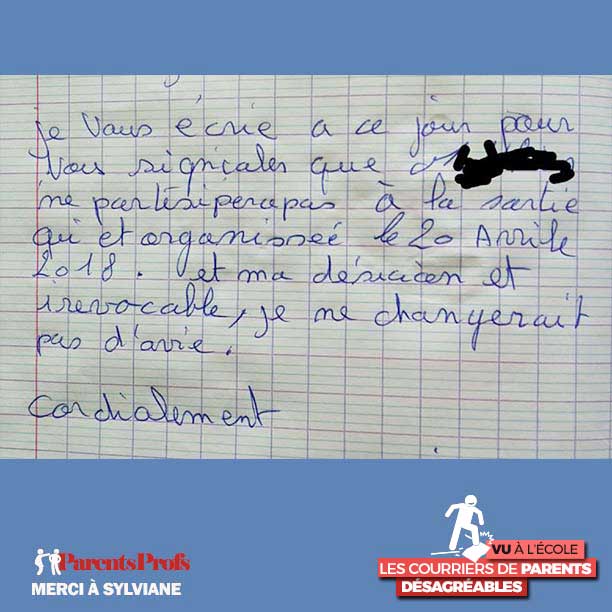 je vous écrie a ce jour pour
vous signicaler que
ne partésiperapas à la sortie
qui et organisseé le 20 Avrile
2018. et ma désicicien et
irevocable, je ne changerait
pas d'avie.
Cordialement
ParentsProfs
MERCI À SYLVIANE
VU À L'ÉCOLE
LES COURRIERS DE PARENTS
DÉSAGRÉABLES